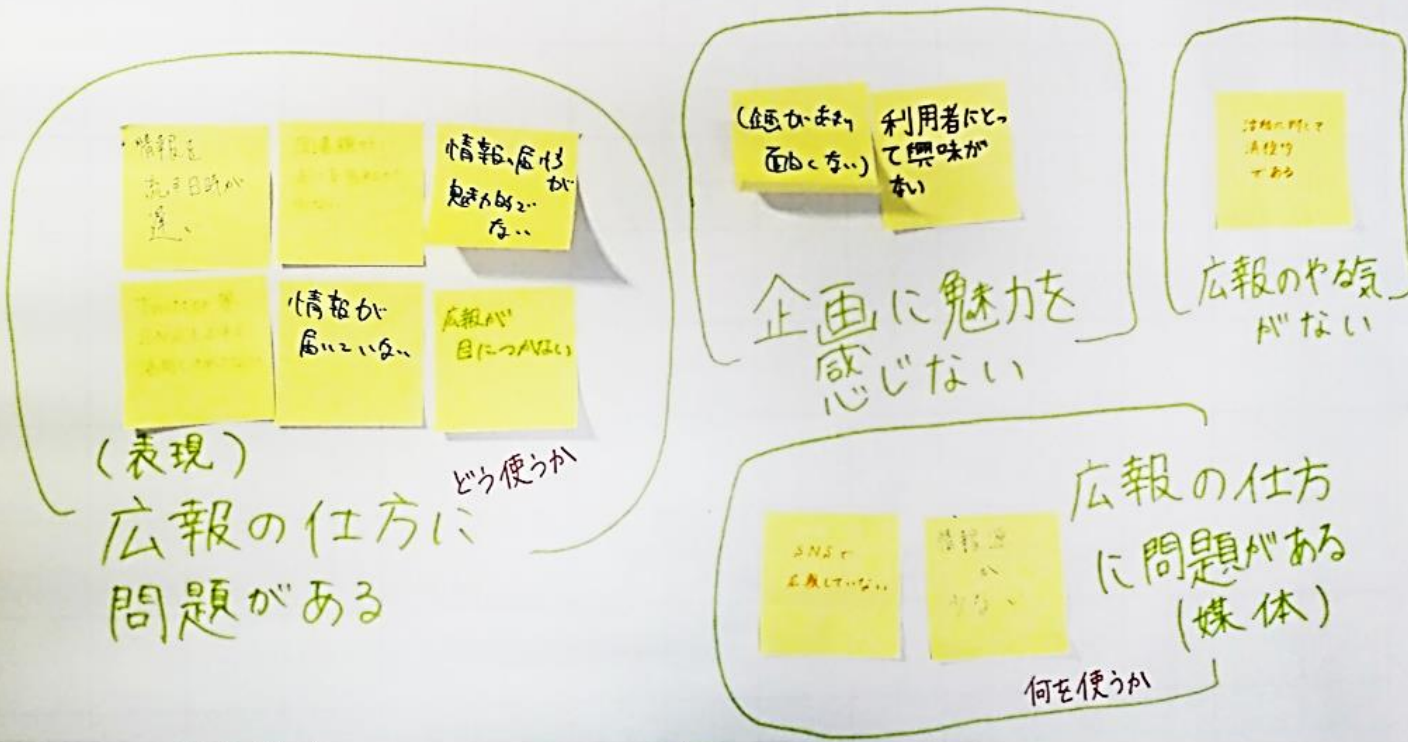 情報を
流す日時が
遅い
情報の届け方が
魅力的で
ない
情報が
届いていない
広報が
目につかない
(表現)
どう使うか
広報の仕方に
問題がある
(企画があまり
面白くない)
利用者にとっ
て興味が
ない
企画に魅力を
感じない
消極的
である
広報のやる気
がない
SNSで
広報していない
情報
が
少ない
広報の仕方
に問題がある
(媒体)
何を使うか